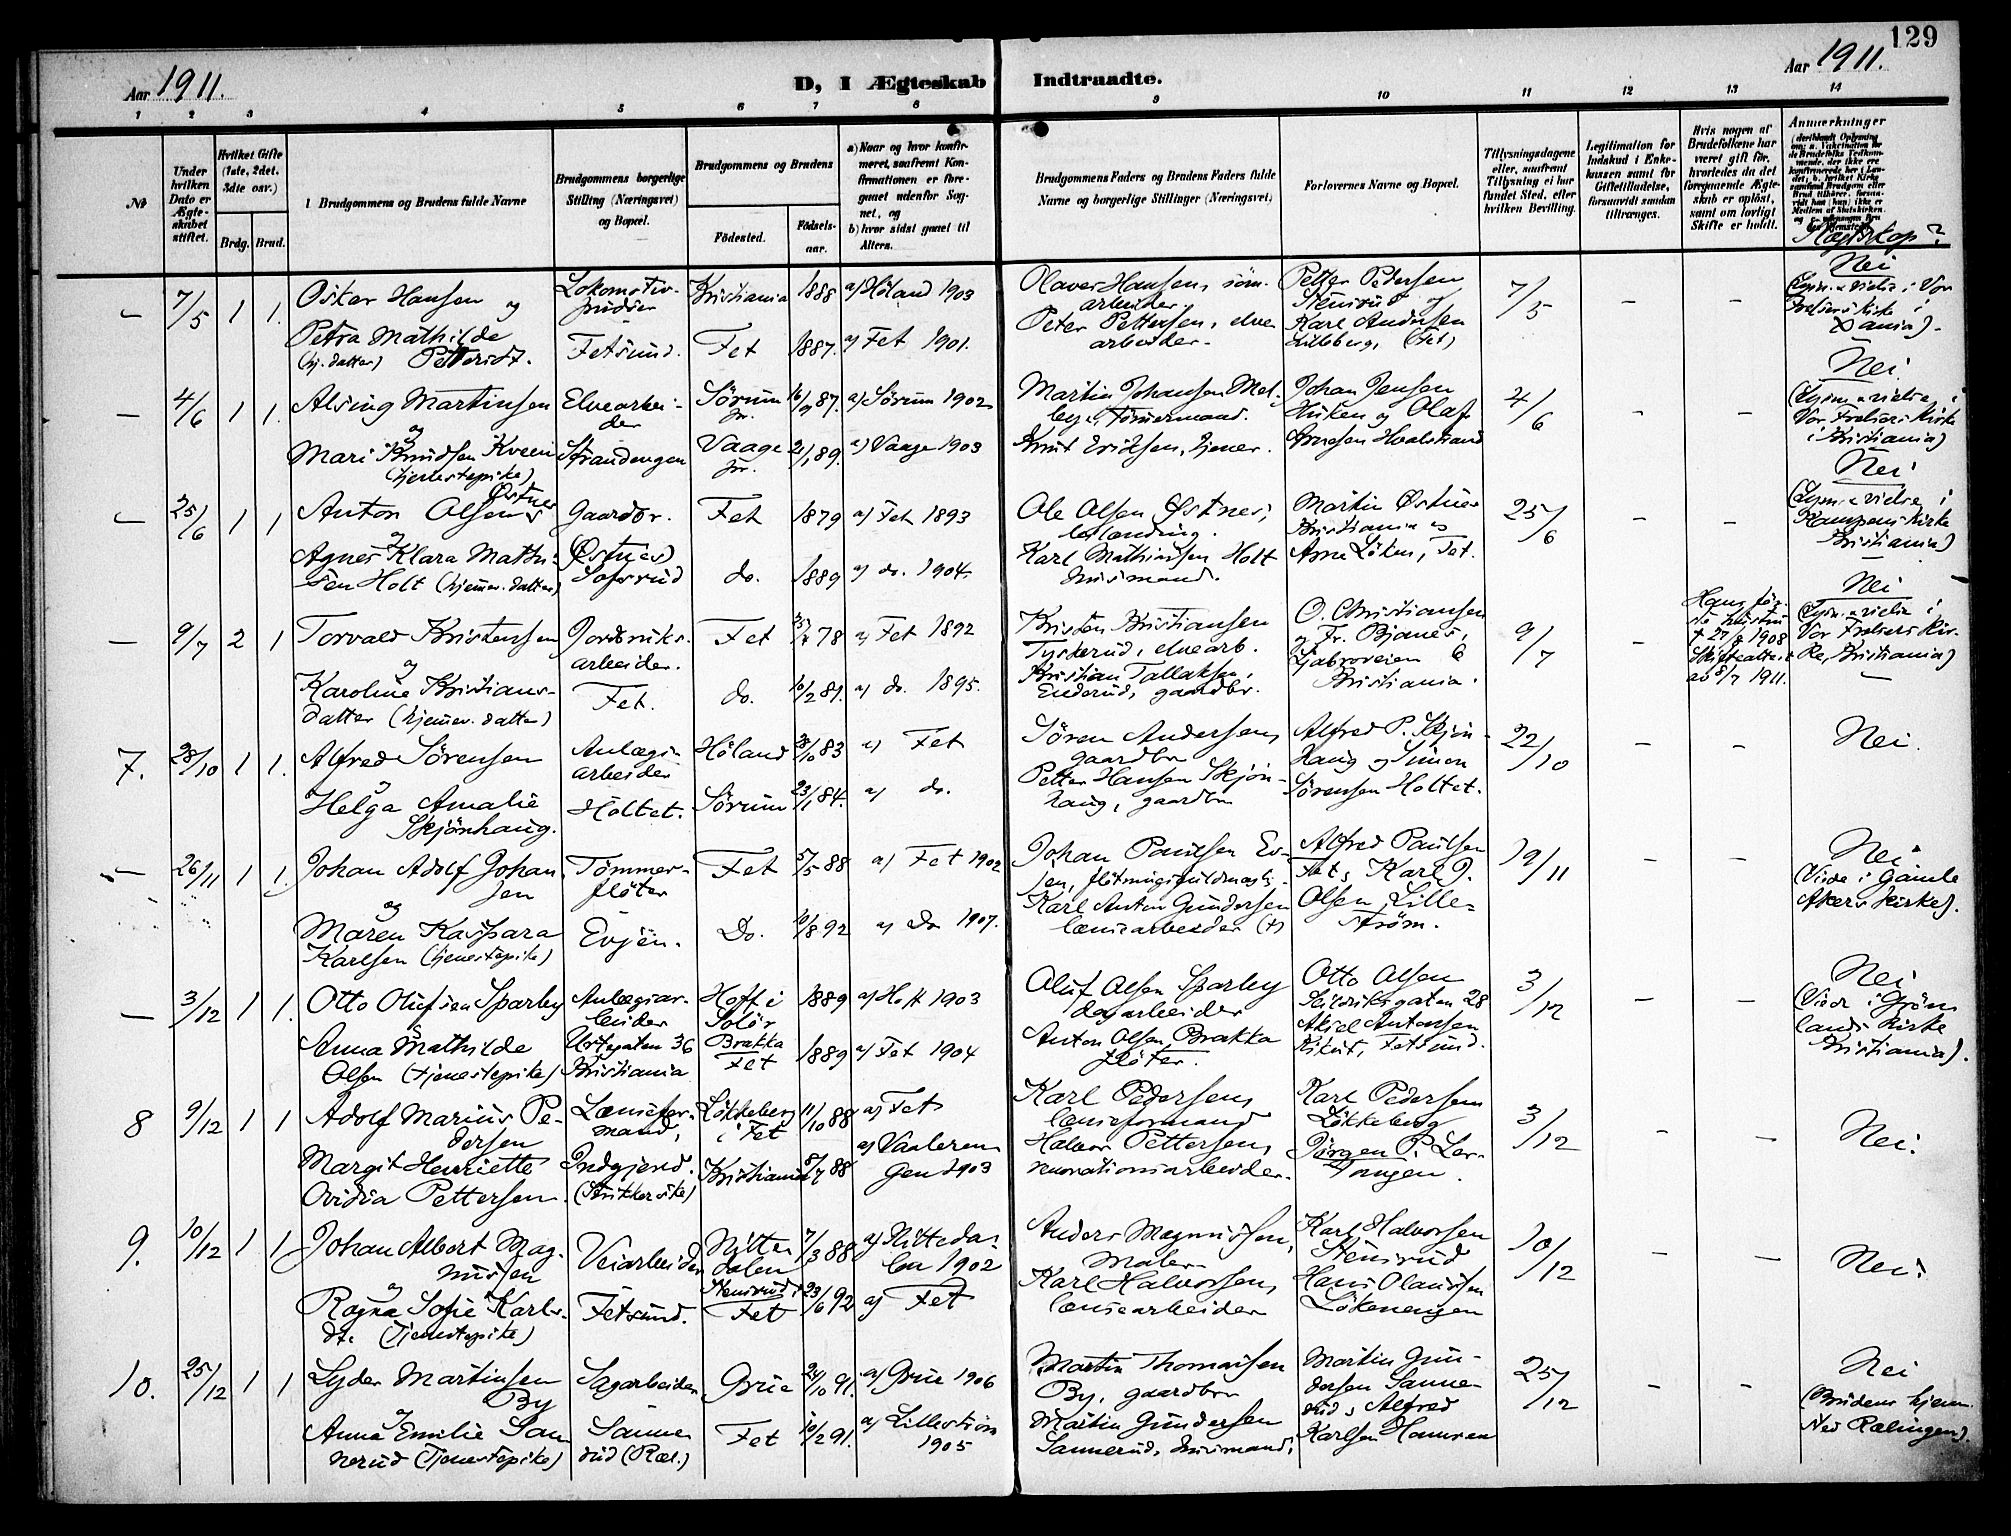 129
Aar 1911.
D, I Ægteskab Indtraadte.
Aar 1911.
1 2 3 4 5 6 7 8 9 10 11 12 13 14
№
Under hvilken Dato er Ægteskabet stiftet.
Hvilket Gifte (1ste, 2det, 3die osv.)
Brdg. Brud.
Brudgommens og Brudens fulde Navne
Brudgommens borgerlige Stilling (Næringsvei) og Bopæl.
Brudgommens og Brudens
Fødested.
Fødselsaar.
a) Naar og hvor konfirmeret, saafremt Konfirmationen er foregaaet udenfor Sognet, og
b) hvor sidst gaaet til Alters.
Brudgommens Faders og Brudens Faders fulde Navne og borgerlige Stillinger (Næringsvei)
Forlovernes Navne og Bopæl.
Tillysningsdagene eller, saafremt Tillysning ei har fundet Sted, efter hvilken Bevilling.
Legitimation for Indskud i Enkekassen samt for Giftetilladelse, forsaavidt saadan tiltrænges.
Hvis nogen af Brudefolkene har været gift før, hvorledes da det foregaaende Ægteskab er opløst, samt om lovligt Skifte er holdt.
Anmerkninger
Slegtskap?
— 7/5 1 1. Oskar Hansen og Lokomotivpudser Kristiania 1888 a) Høland 1903 Olaves Hansen, arbeider. Petter Pedersen Stensrud og 7/5 – – Nei
(Lysn. & vielse i Vor Frelsers kirke i Xania).
Petra Mathilde (hj. datter) Pettersdt. Fetsund. Fet 1887. a) Fet 1901. Peter Pettersen, elvearbeider. Karl Andersen Lilleberg, (Fet)
— 4/6 1 1. Alving Martinsen Elvearbeider Sørum pr. 16/9 87. a) Sørum 1902 Martin Johansen Melby, Tømmermand. Johan Jensen Huken og Olaf 4/6 – – Nei
(Lysn. & vielse i Vor Frelsers Kirke i Kristiania)
og
Mari Knudsen Kveen (tjenestepike) Strandengen Vaage pr. 21/1 89. a) Vaage 1903 Knut Eriksen, tjener. Arnesen Hvalstrand
— 25/6 1 1 Anton Olsen Østnes Gaardbr. Fet 1879 a) Fet 1893 Ole Olsen Østnes, Martin Østnes Kristiania og 25/6 – – Nei
(Lysn. & vielse i Kampens Kirke Kristiania)
og
Agnes Klara Mathisen Holt (hjemmev. datter) (Østnes) do. 1889 a) do. 1904. Karl Mathiassen Holt husmand. Arne Løken, Fet.
— 9/7 2 1 Torvald Kristensen Jordbruksarbeider. Fet 78 a) Fet 1892 Kristen Kristiansen Tyskerud, elvearb. O. Christiansen og Fr. Bjanes, 9/7 – Hans første hustru † 27/8 1908 Skifteattest ab 8/7 1911. Nei
(Lysn. & vielse i Vor Frelsers Kirke, Kristiania)
og
Karoline Kristiansdatter (hjemmev. datter) Fet. do. 10/2 81. a) do. 1895. Kristian Tallaksen, Enderud, gaardbr. Ljabroveien 6 Kristiania.
7. 28/10 1 1. Alfred Sørensen Anlægsarbeider Høland 28/10 83 a) Fet Søren Andersen, gaardbr Alfred P. Skjønhaug og Simen 22/10 – – Nei.
og
Helga Amalie Skjønhaug. Holtet. Sørum 23/1 84. a) do. Petter Hansen Skjønhaug, gaardbr Sørensen Holtet.
— 26/11 1 1. Johan Adolf Johansen Tømmerfløter Fet 5/5 88 a) Fet 1902 Johan Paulsen Evjen, fløtningsfuldmægt. Alfred Paulsen Fet, Karl J. 19/11 – – Nei
(Viede i Gamle Akers Kirke).
og
Maren Kaspara Karlsen (tjenestepike) Evjen. Do. 10/8 92 a) Do 1907. Karl Anton Gundersen lensearbeider (†) Olsen, Lillestrøm.
— 3/12 1 1. Otto Olufsen Sparby Anlægsarbeider Hoff i Solør 1889 a) Hoff 1903 Oluf Olsen Sparby dagarbeider Otto Olsen 28 3/12 – – Nei
(Viede i Grønlands Kirke Kristiania).
Anna Mathilde Olsen (tjenestepike) Urtegaten 36 Kristiania Brakka Fet 1889 a) Fet 1904 Anton Olsen Brakka fløter. Aksel Antonsen Rikut, Fetsund.
8 9/12 1 1 Adolf Marius Pedersen Lenseformand, Løkkeberg i Fet 11/10 88 a) Fet Karl Pedersen, lenseformand Karl Pedersen Løkkeberg 3/12 – – Nei.
Margit Henriette Ovidia Pettersen. Indgjerd. (Strikkerske) Kristiania 88 a) Vaalerengen 1903 Halvor Pettersen, renovationsarbeider. Jørgen P. Lertangen.
9. 10/12 1 1 Johan Albert Magnussen Veiarbeider Nittedalen 7/3 88 a) Nittedalen 1902 Anders Magnussen, Maler Karl Halvorsen Stensrud 10/12 – – Nei.
og
Ragna Sofie Karlsdt. (Tjenestepike) Fetsund. Stensrud Fet 23/6 92 a) Fet Karl Halvorsen, lensearbeider Hans Olaussen Løkenengen
10. 25/12 1 1 Lyder Martinsen By Sagarbeider Grue 24/10 91. a) Grue 1906 Martin Thomassen By, gaardbr Martin Gundersen Sannerud, Alfred 25/12 – – Nei
(Brudens hjem Ned Rælingen).
og
Anna Emilie Sannerud (Tjenestepike) Sannerud (Ræl.) Fet 10/2 91. a) Lillestrøm 1905 Martin Gundersen Sannerud, husmand, Karlsen